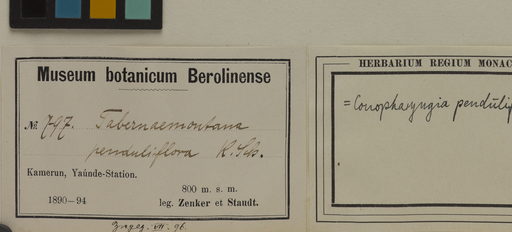 Museum botanicum Berolinense
№ 797. Tabernaemontana
penduliflora K. Sch.
Kamerun, Yaúnde-Station.
800 m. s. m.
1890–94 leg. Zenker et Staudt.
96.
HERBARIUM REGIUM MONAC
= Conopharyngia pendulif